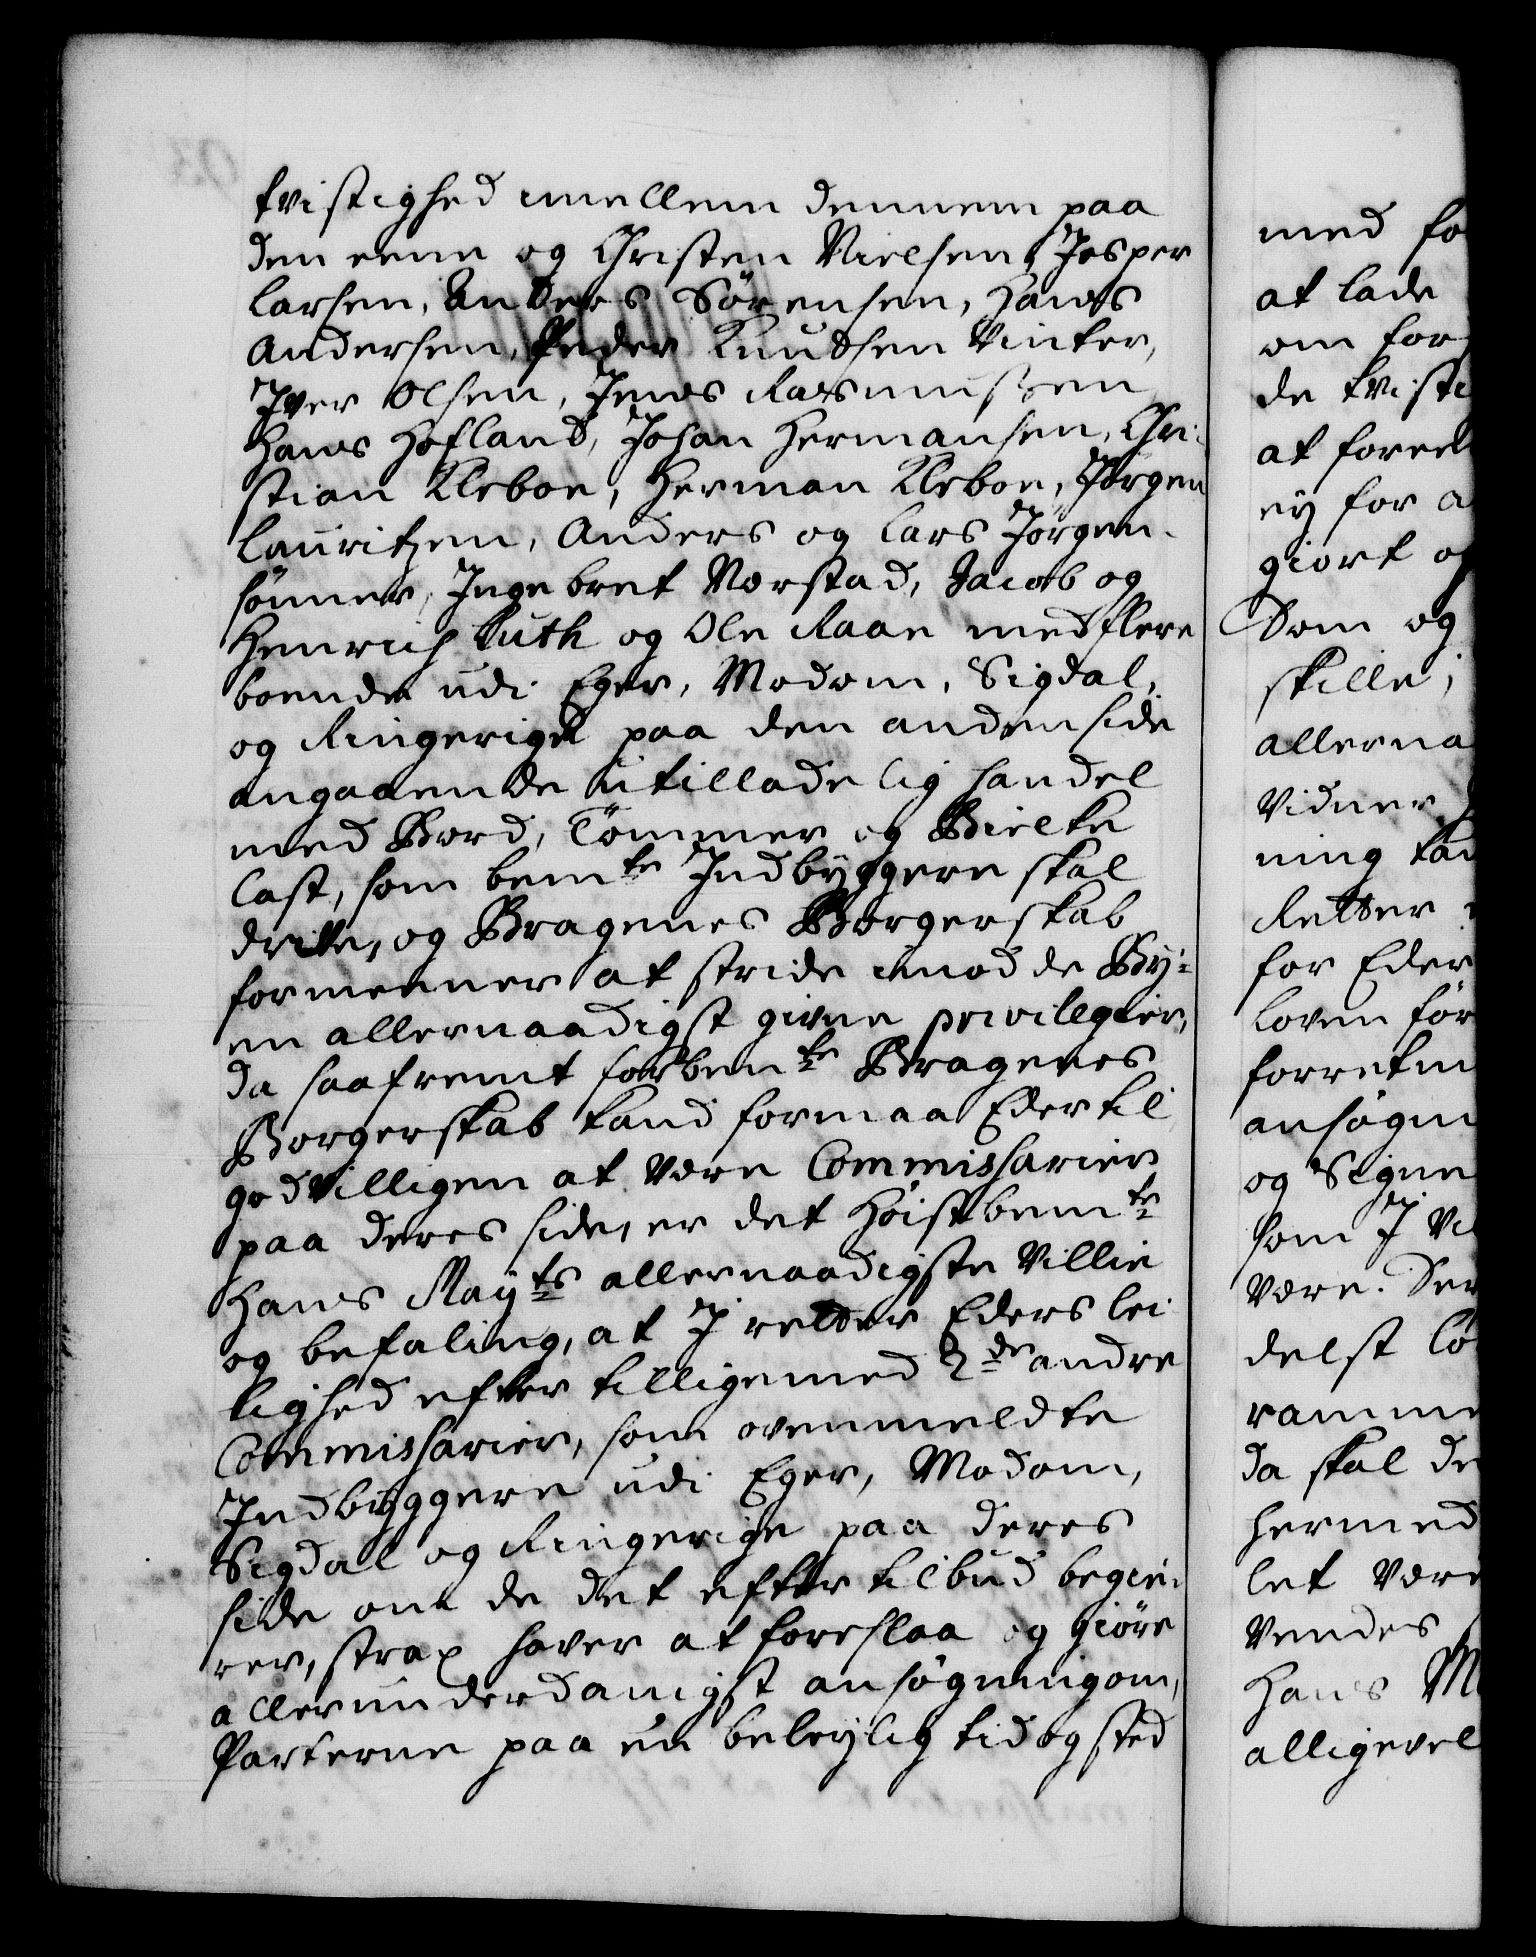 tvistighed imellem dennem paa
den eene og Christen Nielsen, Jesper
Larsen, Anders Sörensen, Hans
Andersen, Peder Knudsen Vinter,
Iver Olsen, Jens Rasmussen
Hans Hofland, Johan Hermansen, Chri-
stian Kleboe, Herman Kleboe, Jörgen
Lauritzen, Anders og Lars Jörgen-
sönner, Ingebret Norstad, Jacob og
Henrich Luth og Ole Raae med flere
boende udi Eger, Modom, Sigdal,
og Ringerige paa den anden side
angaaende utilladelig handel
med Bord, Tömmer og Bielke
Last, som bemte Indbyggere skal
drive, og Bragenes Borgerskab
formeener at stride imod de By-
en allernaadigst givne privilegier,
da saafremt forbemte Bragenes
Borgerskab kand formaa Eder til
godvilligen at være Commissarier
paa deres side, er det höistbemte
Hans Mayts allernaadigste Villie
og befaling, at I retter Eders lei
lighed efter tilligemed 2de andre
Commissarier, som ovenmeldte
Indbyggere udi Eger, Modom,
Sigdal og Ringerige paa deres
side om de det efter tilbud begie-
rer, strax haver at foreslaa og giöre
allerunderdanigst ansögning om,
Parterne paa en beleylig tid og sted
med fo
at lade
om for
de tvisti
at foree
ey for a
giort o
Som og
skille,
allerna
Vidner
ning kan
Retter
for Eder
Loven för
forretn
ansögn
og Signe
som I Vi
være. Der
delst lö
ramme
da skal de
hermed
let være
Vendes
Hans M
alligevel